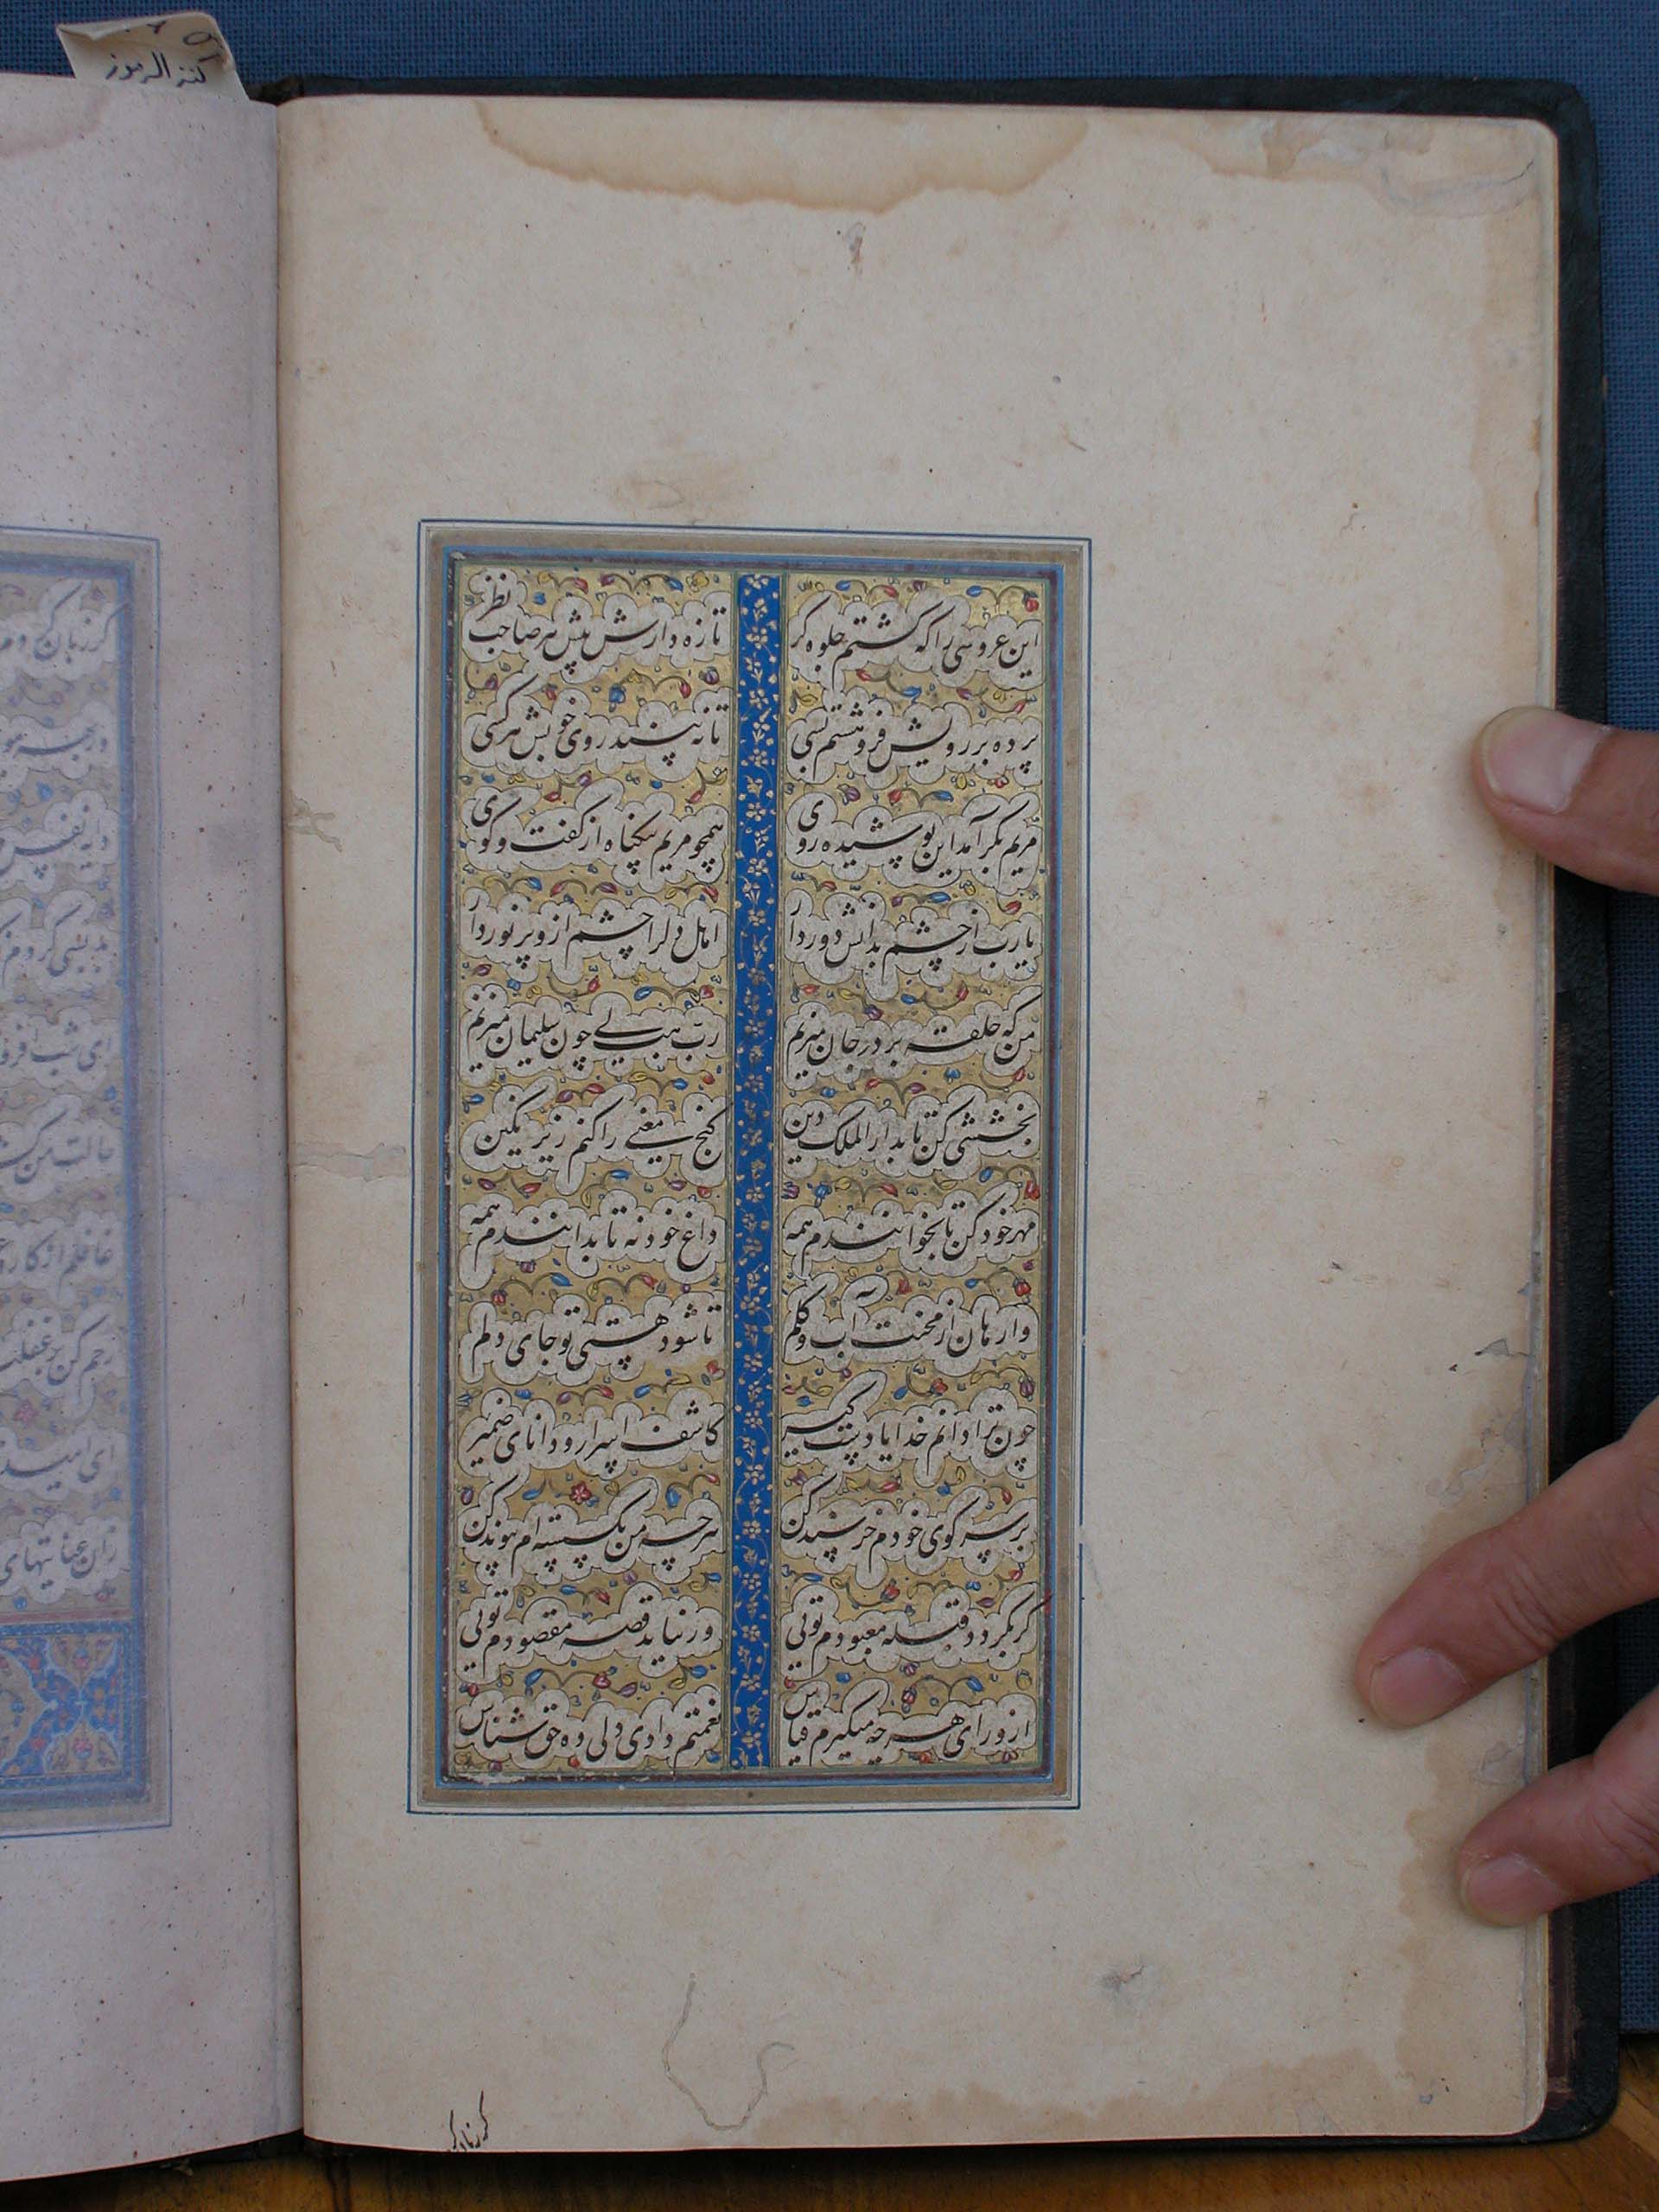 کنز الرموز
این عروسی را که گشتم جلوه گر تازه دارش پیش هر صاحب نظر
پرده بر رویش فرو هشتم بسی تا نه بیند روی خوبش هر کسی
مریم بکر آمد این پوشیده روی همچو مریم بیگناه از گفت و گوی
یارب از چشم بدانش دور دار اهل دل را چشم ازو پر نور دار
من که حلقه بر در جان میزنم رب هب لی چون سلیمان میزنم
بخششی کن تا بدار الملک دین گنج معنی را کنم زیر نگین
مهر خود کن تا بخوانندم همه داغ خود نه تا بدانندم همه
وارهان از محنت آب و گلم تا شود هستی تو جای دلم
چون ترا دانم خدایا دستگیر کاشف اسرار و دانای ضمیر
بر سر کوی خودم خرسند کن هر چه من بگسسته ام پیوند کن
گر بگردد قبله معبودم تویی ور نیاید قصه مقصودم تویی
از ورای هر چه میگیرم قیاس نعمتم دادی دلی ده حق شناس
کر زبان